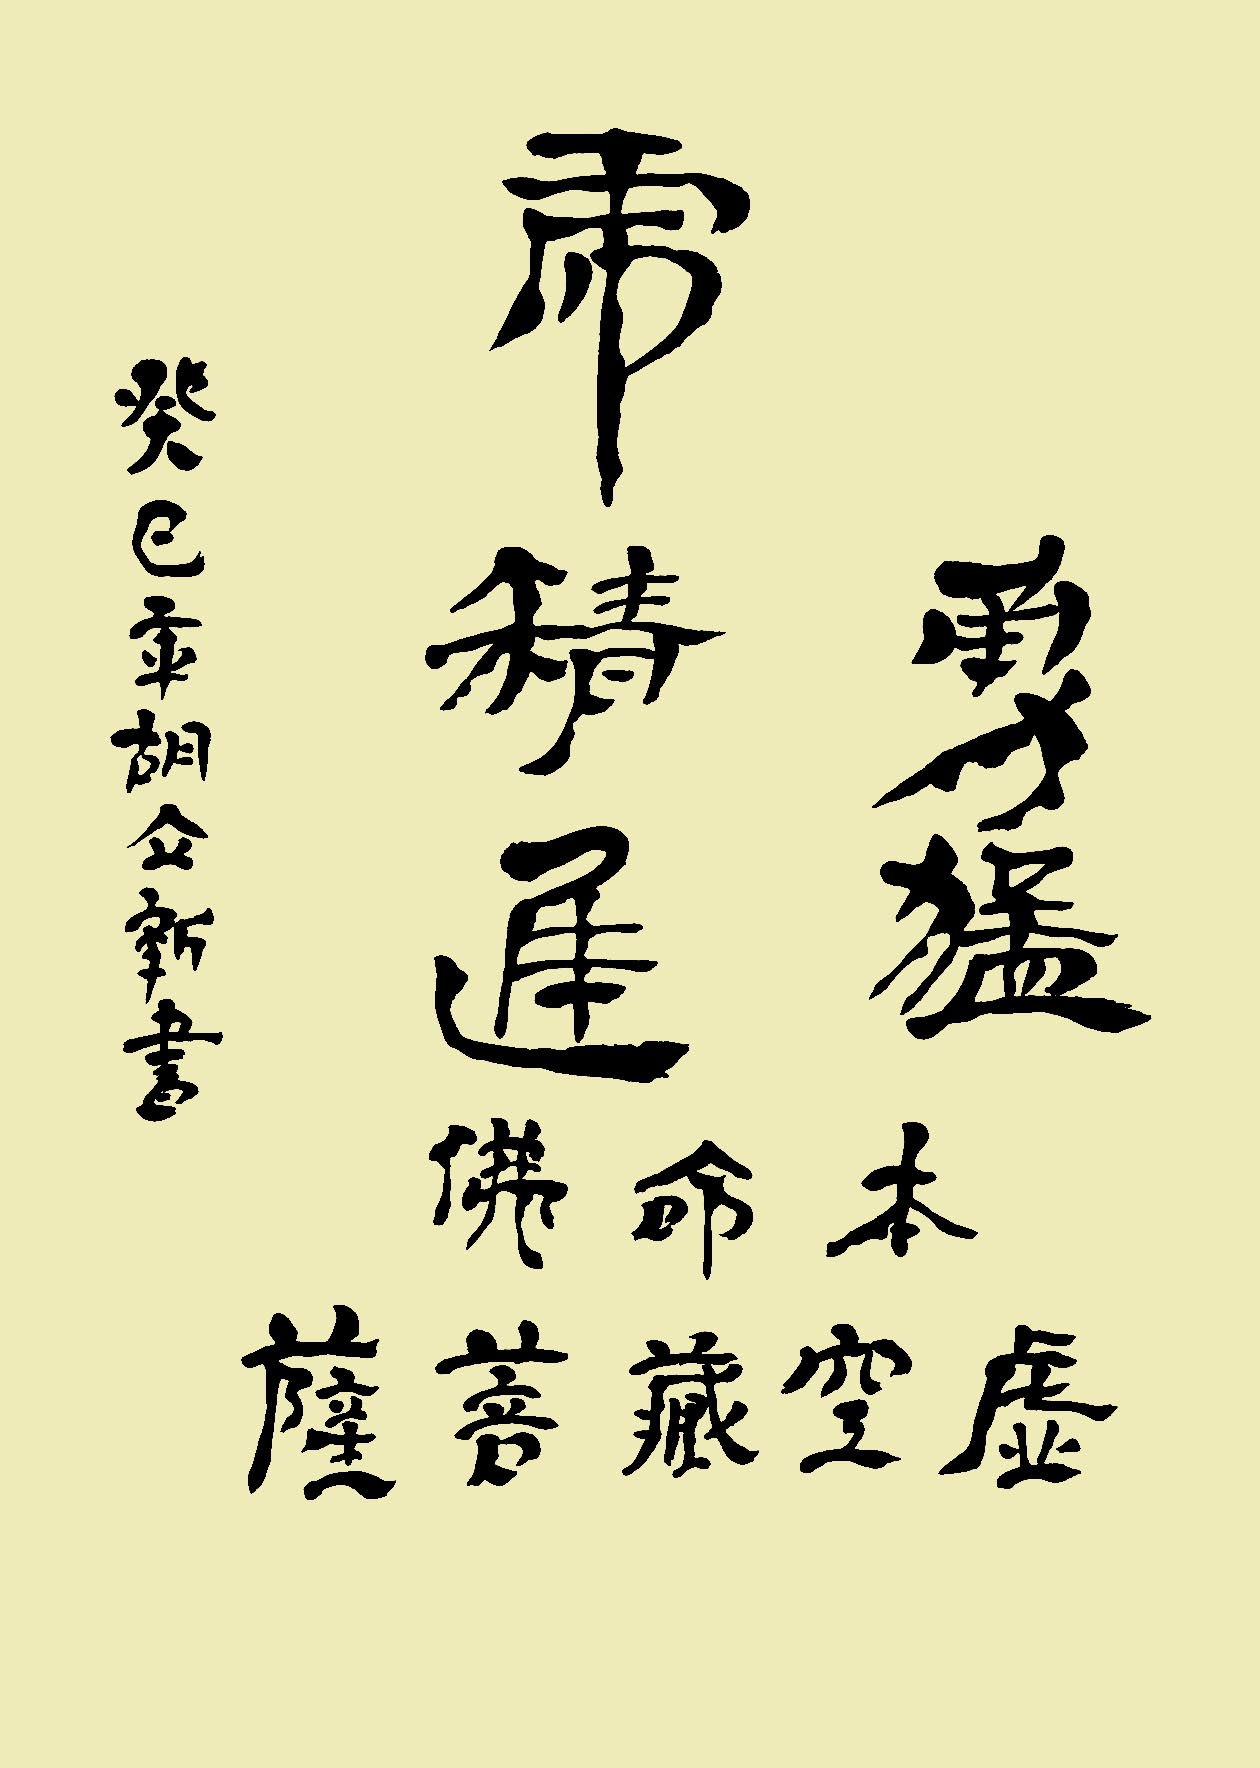 虎
勇猛
精進
本命佛
虛空藏菩薩
癸巳年胡立新書